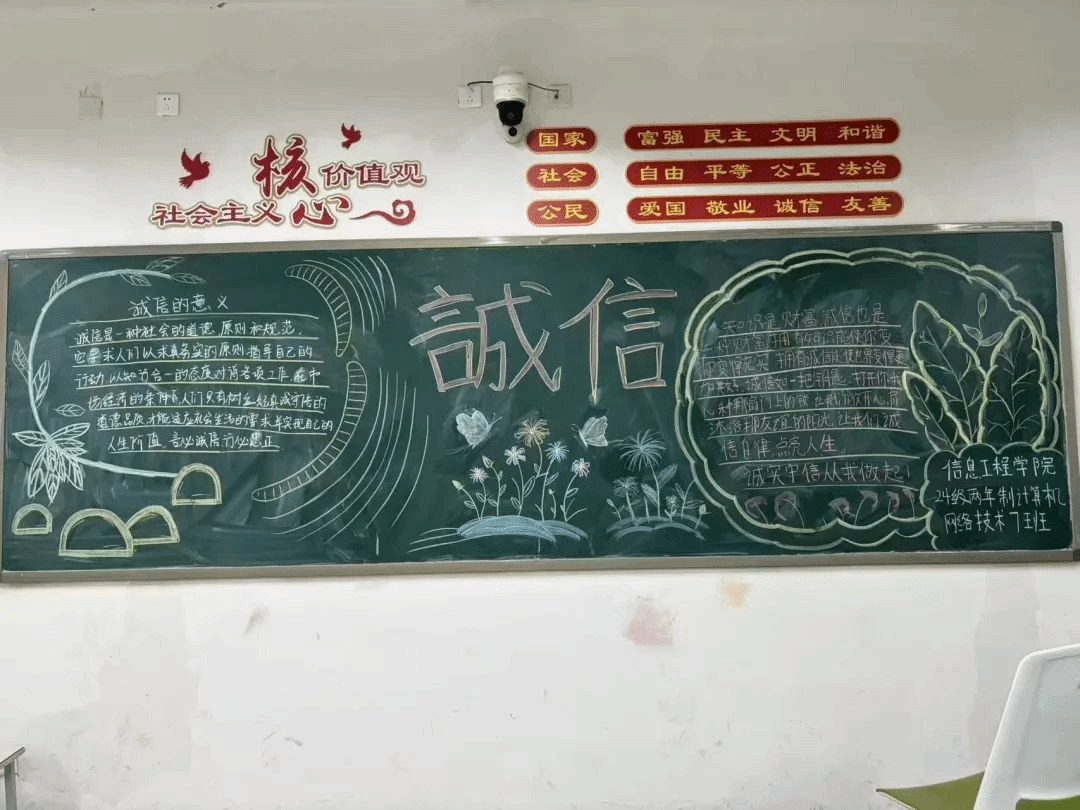 社会主义核心价值观
国家 富强 民主 文明 和谐
社会 自由 平等 公正 法治
公民 爱国 敬业 诚信 友善
诚信的意义
诚信是一种社会的道德原则和规范,
它要求人们以求真务实的原则指导自己的
行动,以知行合一的态度对待各项工作,在市
场经济的条件下人们只有树立起真诚守信的
道德品质,才能适应社会生活的要求,并实现自己的
人生价值,言必诚信行必忠正
誠信
知识是财富,诚信也是
种财富,拥有知识能使你变
变得充实,拥有诚信能使世界变得更
诚信如一把钥匙,打开你我
心灵门上的锁,让我们敞开心扉
沐浴阳光,让我们诚
信自律,点亮人生。
诚实守信从我做起!
信息工程学院
24级两年制计算机
网络技术7班